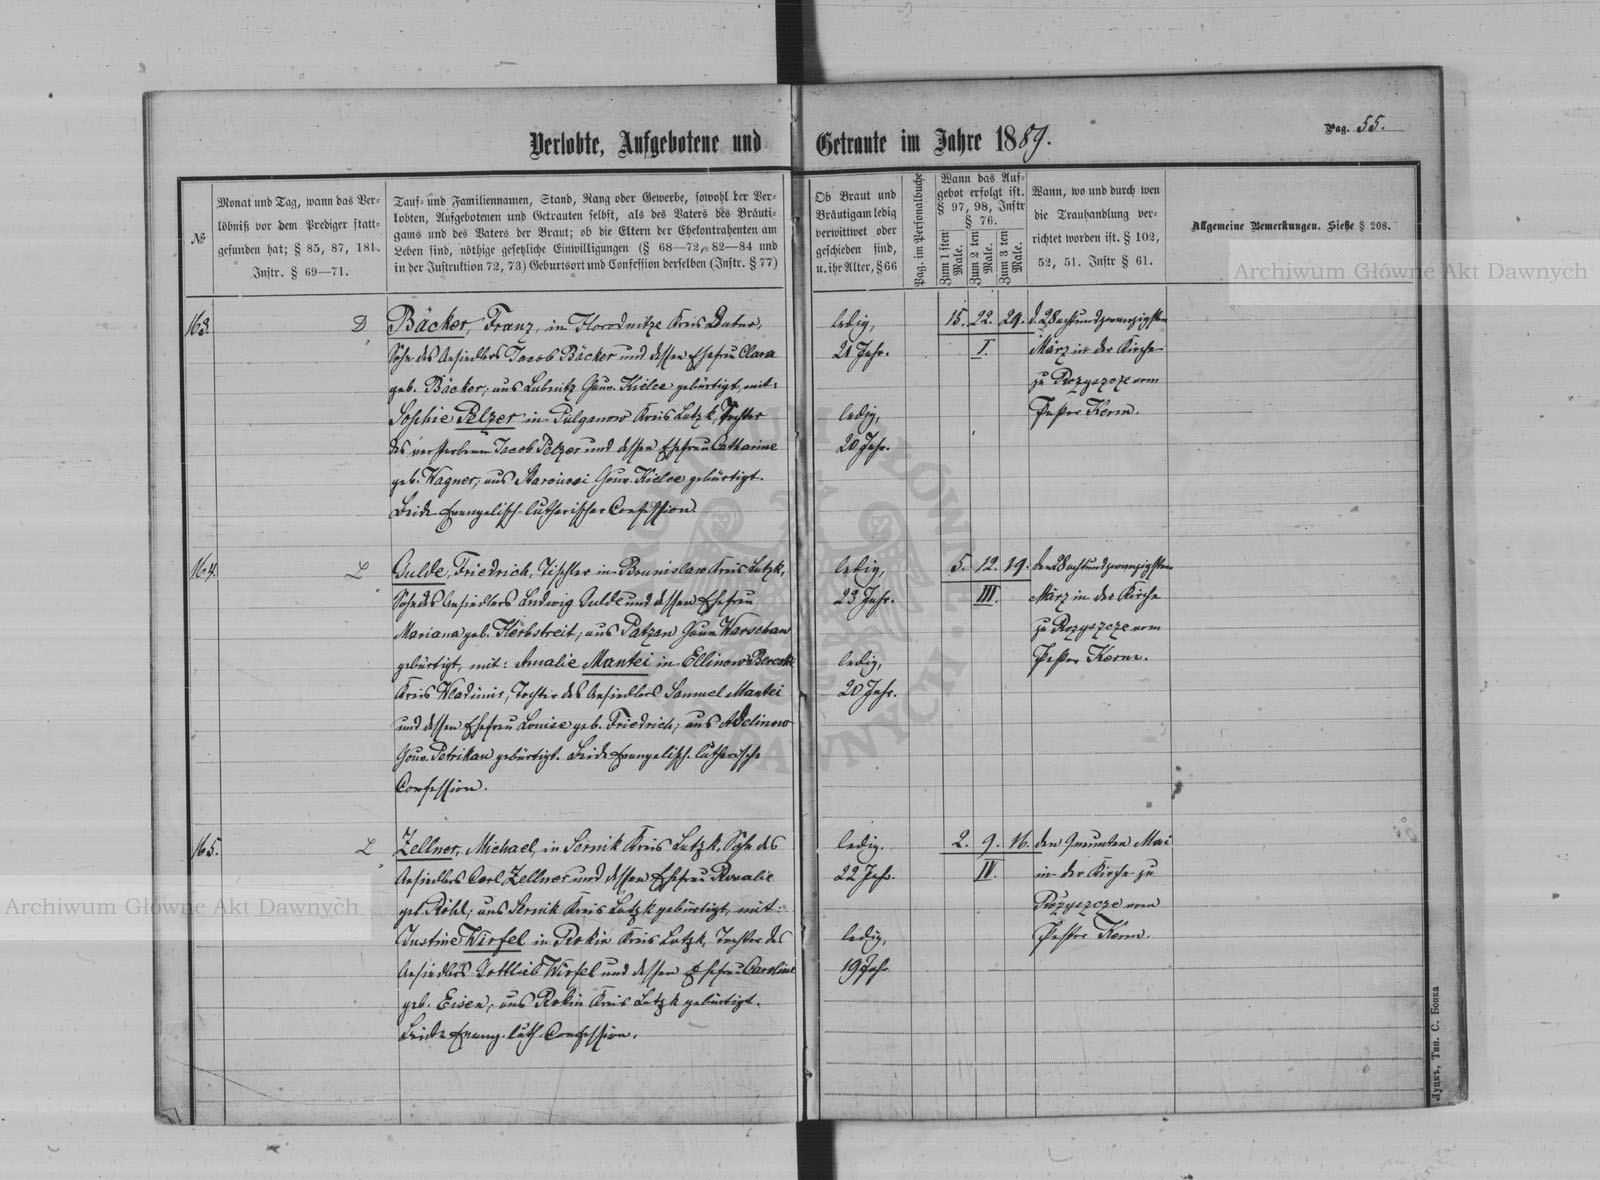 Pag. 55.
Verlobte, Aufgebotene und Getraute im Jahre 1889.
№
Monat und Tag, wann das Ver-
löbniß vor dem Prediger statt-
gefunden hat; § 85, 87, 181.
Instr. § 69—71.
Tauf- und Familiennamen, Stand, Rang oder Gewerbe, sowohl der Ver-
lobten, Aufgebotenen und Getrauten selbst, als des Vaters des Bräuti-
gams und des Vaters der Braut; ob die Eltern der Ehekontrahenten am
Leben sind, nöthige gesetzliche Einwilligungen (§ 68—72, 82—84 und
in der Instruktion 72, 73) Geburtsort und Confession derselben (Instr. § 77)
Ob Braut und
Bräutigam ledig
verwittwet oder
geschieden sind,
u. ihr Alter, § 66
Pag. im Personalbuche
Wann das Auf-
gebot erfolgt ist.
§ 97, 98, Instr
§ 76.
Zum 1 sten Male.
Zum 2 ten Male.
Zum 3 ten Male.
Wann, wo und durch wen
die Trauhandlung ver-
richtet worden ist. § 102,
52, 51. Instr § 61.
Allgemeine Bemerkungen. Siehe § 208.
Archiwum Główne Akt Dawnych
163.
D
Bäcker, Franz, in Horodnitze Kreis Dubno,
Sohn des Ansiedlers Jacob Bäcker und dessen Ehefrau Clara
geb. Bäcker; aus Lubnitz Gouv. Kielce gebürtigt, mit:
Sophie Pelzer in Pulganow Kreis Lutzk, Tochter
des verstorbenen Jacob Pelzer und dessen Ehefrau Catharine
geb. Wagner; aus Gouv. Kielce gebürtigt.
Beide Evangelisch-lutherischer Confession.
ledig,
21 Jahr.
ledig,
20 Jahr.
15. 22. 29.
I.
d. 28 achtundzwanzigsten
März in der Kirche
zu Rozyszcze vom
Pastor Kerm.
164.
L
Gulde, Friedrich, Tischler in Bronislaw Kreis Lutzk,
Sohn des Ansiedlers Ludwig Gulde und dessen Ehefrau
Mariana geb. Herbstreit; aus Patzen Gouv. Warschau
gebürtigt, mit: Amalie Mantei in Ellinow
Kreis Wladimir, Tochter des Ansiedlers Samuel Mantei
und dessen Ehefrau Louise geb. Friedrich; aus Adelinow
Gouv. Petrikau gebürtigt. Beide Evangelisch-lutherische
Confession.
ledig,
23 Jahr.
ledig,
20 Jahr.
5. 12. 19.
III.
den 28 achtundzwanzigsten
März in der Kirche
zu Rozyszcze vom
Pastor Kerm.
165.
L
Zellner, Michael, in Sernik Kreis Lutzk, Sohn des
Ansiedlers Carl Zellner und dessen Ehefrau Rosalie
geb. Röhl; aus Sernik Kreis Lutzk gebürtigt, mit:
Justine Wirfel in Rokin Kreis Lutzk, Tochter des
Ansiedlers Gottlieb Wirfel und dessen Ehefrau Caroline
geb. Eisen; aus Rokin Kreis Lutzk gebürtigt.
Beide Evang. luth. Confession.
ledig.
22 Jahr.
ledig,
19 Jahr
2. 9. 16.
IV.
den Neunten Mai
in der Kirche zu
Rozyszcze vom
Pastor Kerm.
Archiwum Główne Akt Dawnych
Луцкъ, Тип. С. Бонка